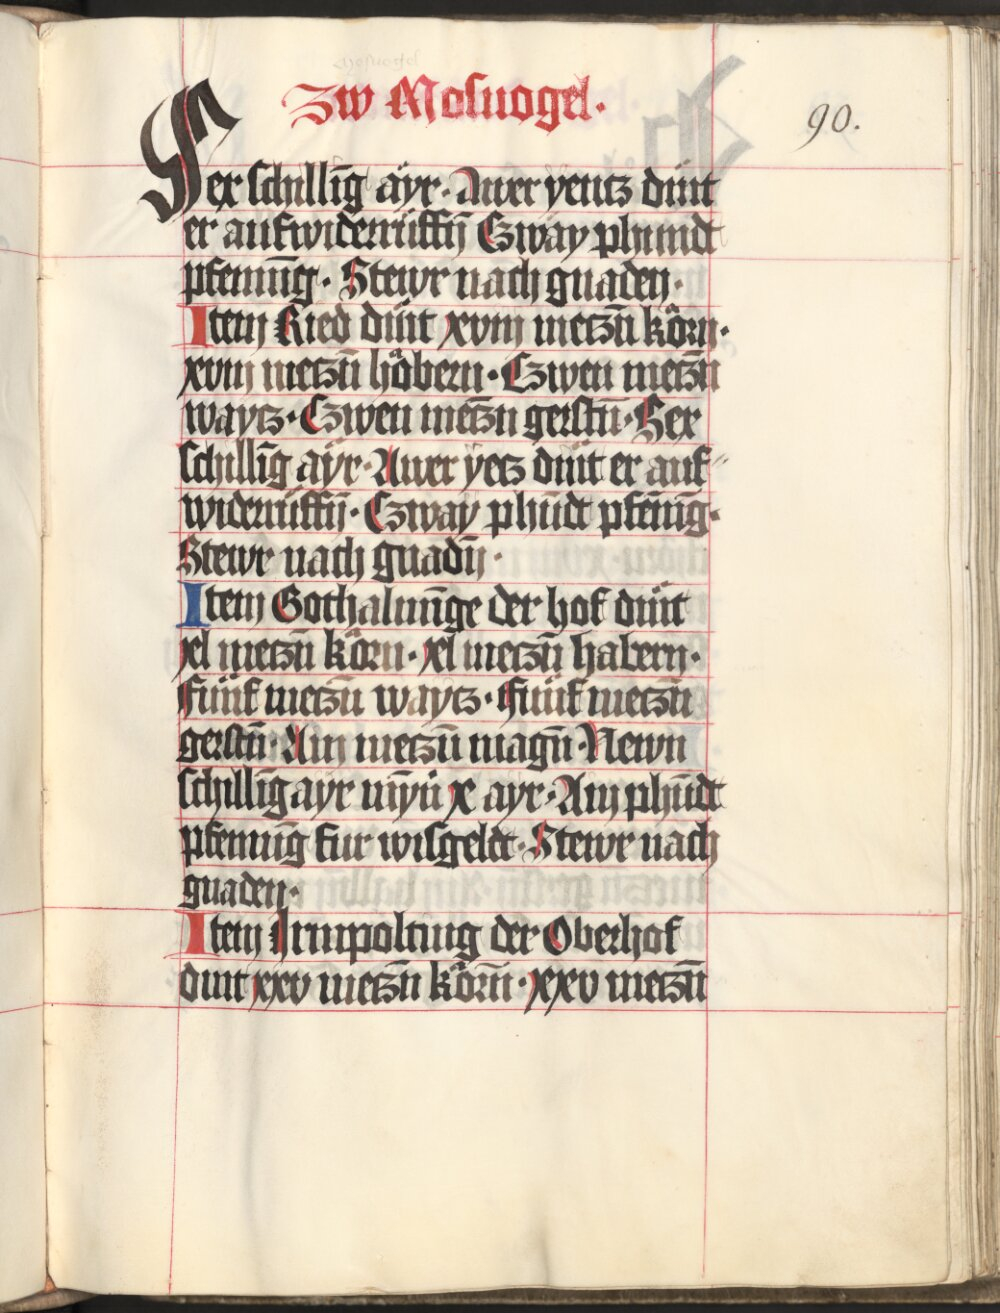 Zw Mosuogel.
90.
Sex schilling ayr. Awer yentz diint
er auf widerrüffn̄ Czway phundt
pfenn̄ig. Stewr nach gnaden.
Item Ried diint xviij metzn̄ körn.
xviij metzn̄ höbern. Czwen metzn̄
waytz. Czwen metzn̄ gerstn̄. Sex
schillīg aÿr. Awer ÿetz diint er auf
widerrüffn̄. Czwaÿ phūdt pfen̄ig.
Stewr nach gnadn̄.
Item Gothalmīge der hof diint
xl metzn̄ körn. xl metzn̄ habern.
Fünf metzn̄ waytz. fünf metzn̄
gerstn̄. Ain metzn̄ magn̄. Newn
schillīg ayr mȳn x ayr. Ain phūdt
pfenīg für wisgeldt. Stewr nach
gnaden.
Item Irnpolting der Oberhof
diint xxv metzn̄ körn̄. xxv metzn̄